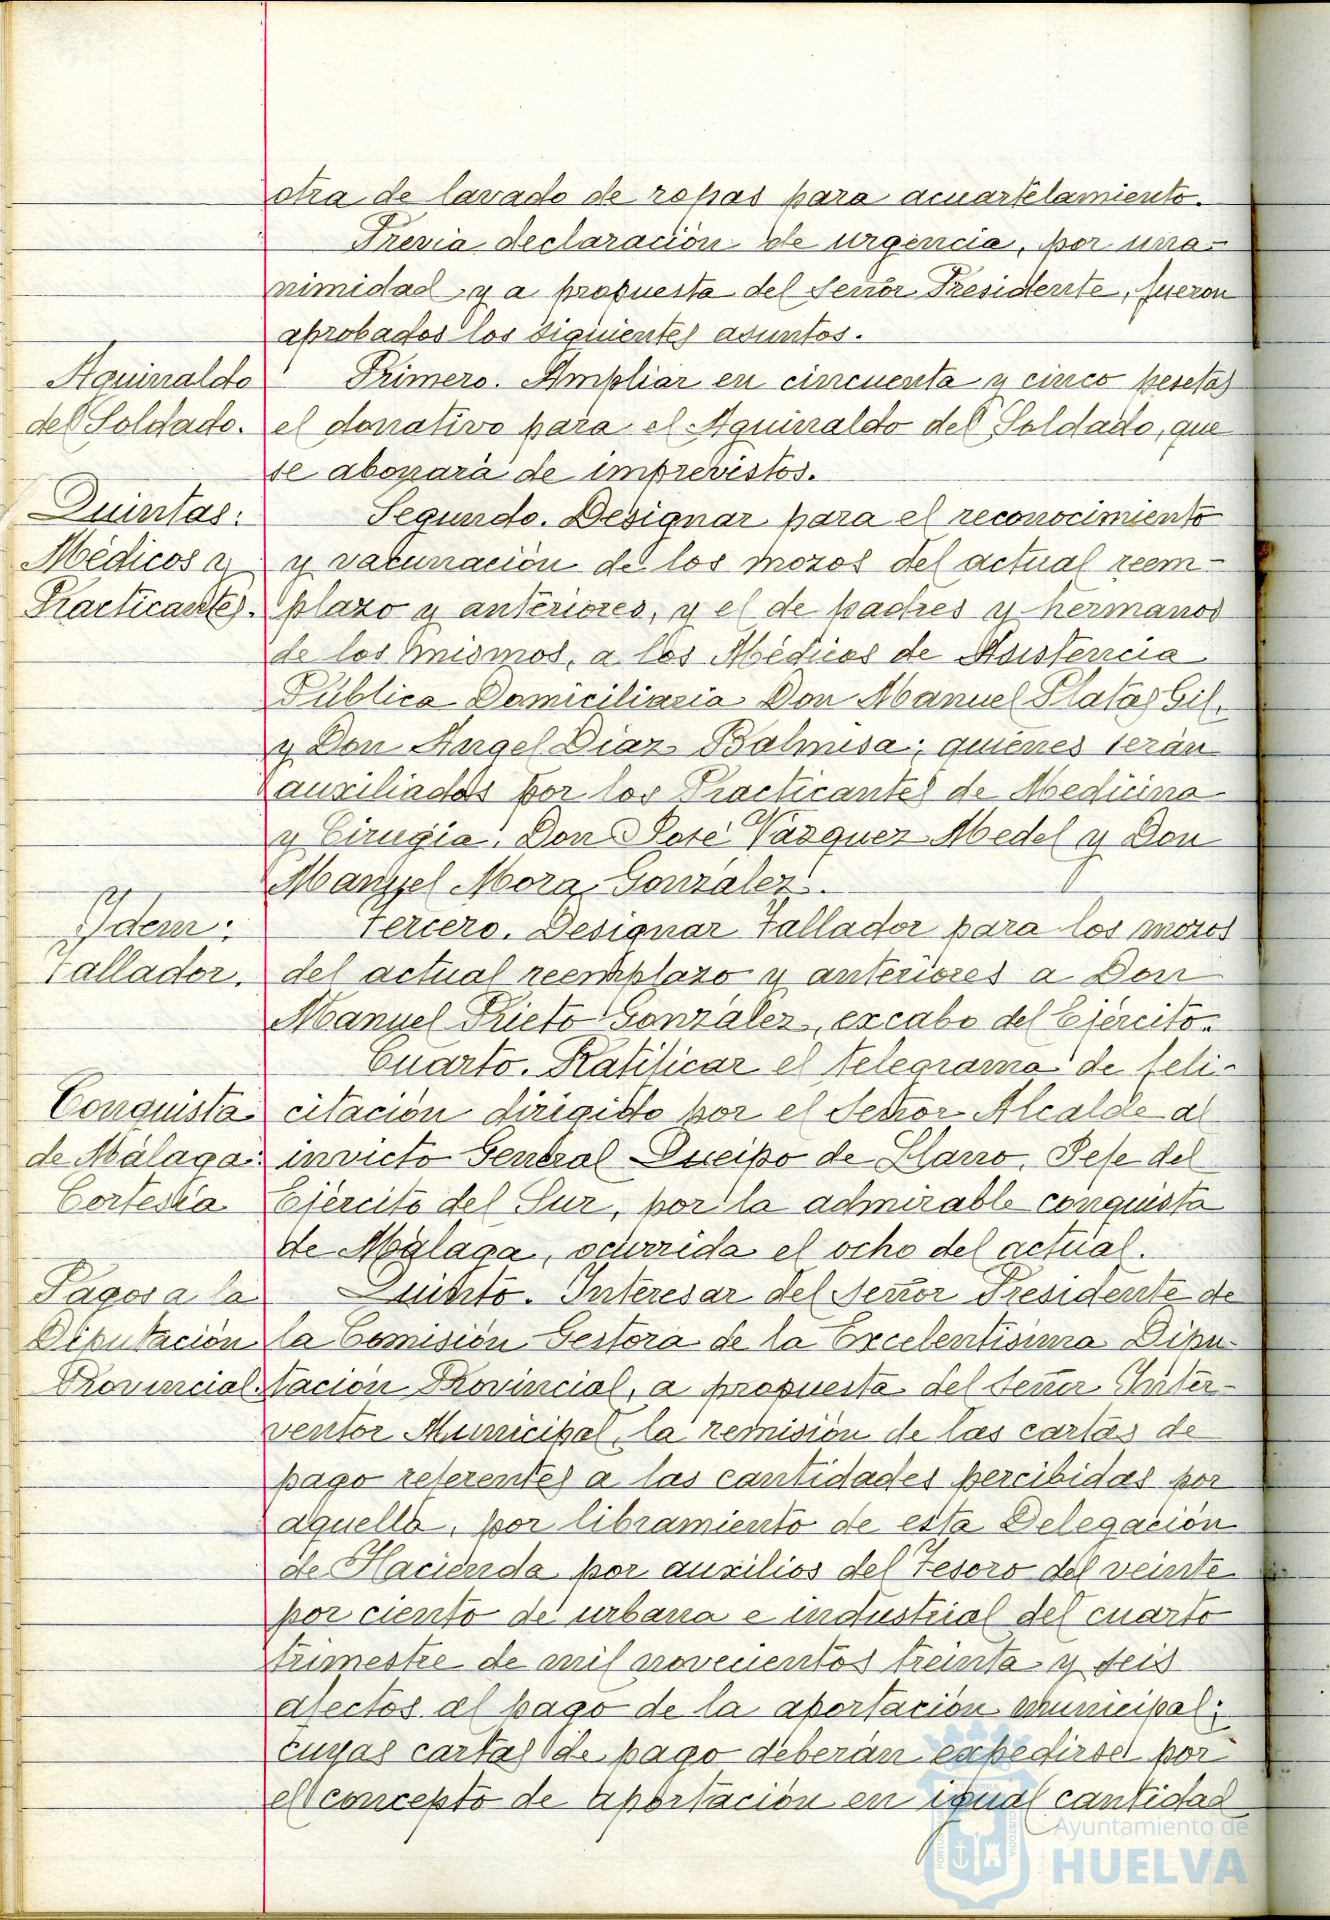 otra de lavado de ropas para acuartelamiento.
Previa declaración de urgencia, por una-
nimidad y a propuesta del Señor Presidente, fueron
aprobados los siguientes asuntos.
Aguinaldo
del Soldado.
Primero. Ampliar en cincuenta y cinco pesetas
el donativo para el Aguinaldo del Soldado, que
se abonará de imprevistos.
Quintas:
Médicos y
Practicantes.
Segundo. Designar para el reconocimiento
y vacunación de los mozos del actual reem-
plazo y anteriores, y el de padres y hermanos
de los mismos, a los Médicos de Asistencia
Pública Domiciliaria Don Manuel Platas Gil,
y Don Angel Díaz Balmisa; quiénes serán
auxiliados por los Practicantes de Medicina
y Cirugía, Don José Vázquez Medel y Don
Manuel Mora González.
Idem:
Tallador.
Tercero. Designar Tallador para los mozos
del actual reemplazo y anteriores a Don
Manuel Prieto González, excabo del Ejército.
Conquista
de Málaga:
Cortesía
Cuarto. Ratificar el telegrama de feli-
citación dirigido por el Señor Alcalde al
invicto General Queipo de Llano, Jefe del
Ejército del Sur, por la admirable conquista
de Málaga, ocurrida el ocho del actual.
Pagos a la
Diputación
Provincial.
Quinto. Interesar del Señor Presidente de
la Comisión Gestora de la Excelentísima Dipu-
tación Provincial, a propuesta del Señor Inter-
ventor Municipal, la remisión de las cartas de
pago referentes a las cantidades percibidas por
aquella, por libramiento de esta Delegación
de Hacienda por auxilios del Tesoro del veinte
por ciento de urbana e industrial del cuarto
trimestre de mil novecientos treinta y seis
afectos al pago de la aportación municipal;
cuyas cartas de pago deberán expedirse por
el concepto de aportación en igual cantidad
Ayuntamiento de
HUELVA